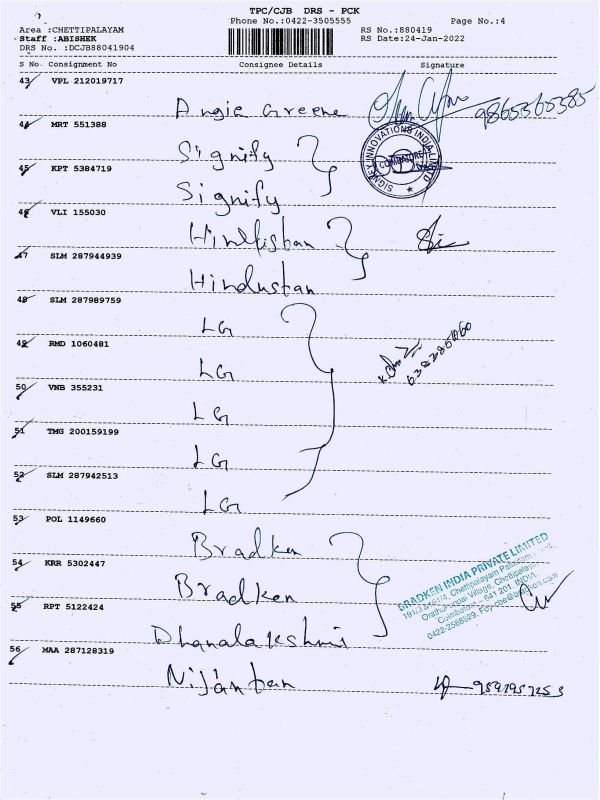 TPC/CJB DRS - PCK
Phone No.:0422-3505555 Page No.:4
Area :CHETTIPALAYAM RS No.:880419
Staff :ABISHEK RS Date:24-Jan-2022
DRS No. :DCJB88041904
S No Consignment No Consignee Details Signature
43 VPL 212019717
Angie Greene 9865365385
44 MRT 551388
Signify
SIGNIFY INNOVATIONS INDIA LIMITED
COIMBATORE
45 KPT 5384719
Signify
46 VLI 155030
Hindustan
47 SLM 287944939
Hindustan
48 SLM 287989759
LG
49 RMD 1060481
LG
50 VNB 355231
LG
51 TMG 200159199
LG
52 SLM 287942513
LG
53 POL 1149660
Bradken
BRADKEN INDIA PRIVATE LIMITED
Chettipalayam
Village, Chettipalayam
Coimbatore - 641 201, INDIA.
54 KRR 5302447
Bradken
55 RPT 5122424
Dhanalakshmi
56 MAA 287128319
Nijantan